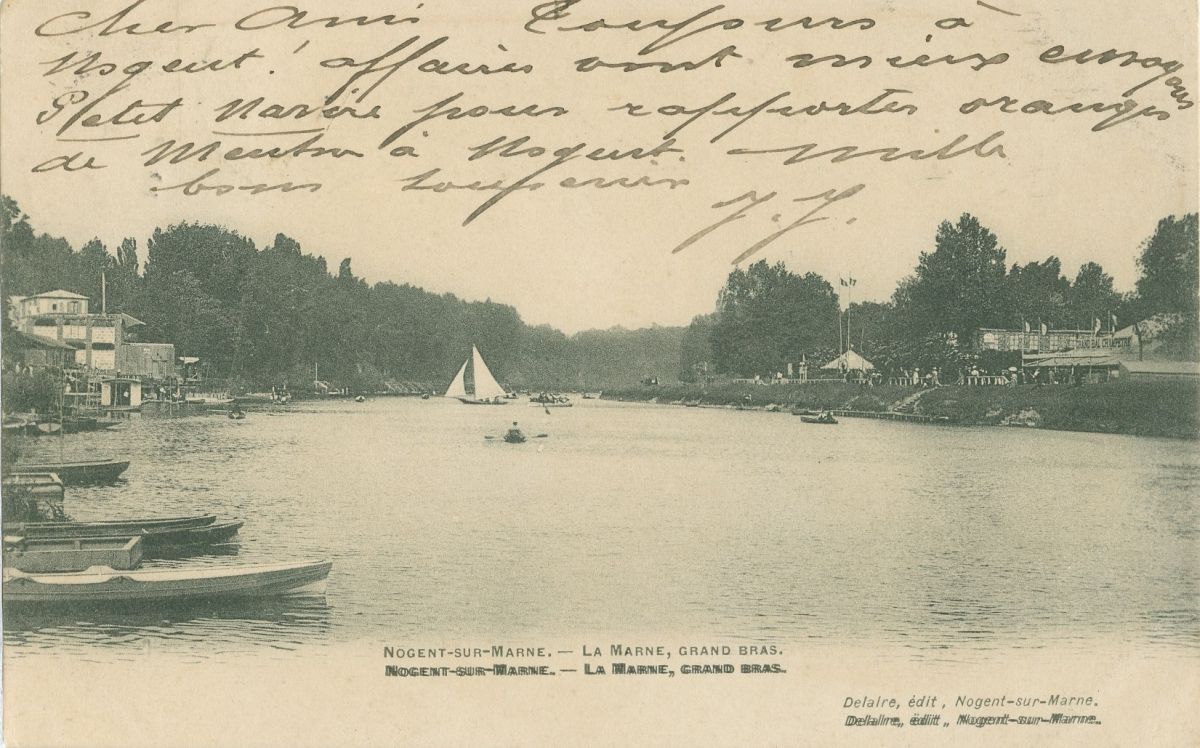 Cher Ami Toujours à
Nogent! affaires vont mieux envoyons
Petit Navire pour rapporter oranges
de Menton à Nogent. — mille
bons souvenirs
J. J.
GRAND BAL CHAMPETRE
NOGENT-SUR-MARNE. — LA MARNE, GRAND BRAS.
NOGENT-SUR-MARNE. — LA MARNE, GRAND BRAS.
Delaire, édit, Nogent-sur-Marne.
Delaire, édit, Nogent-sur-Marne.